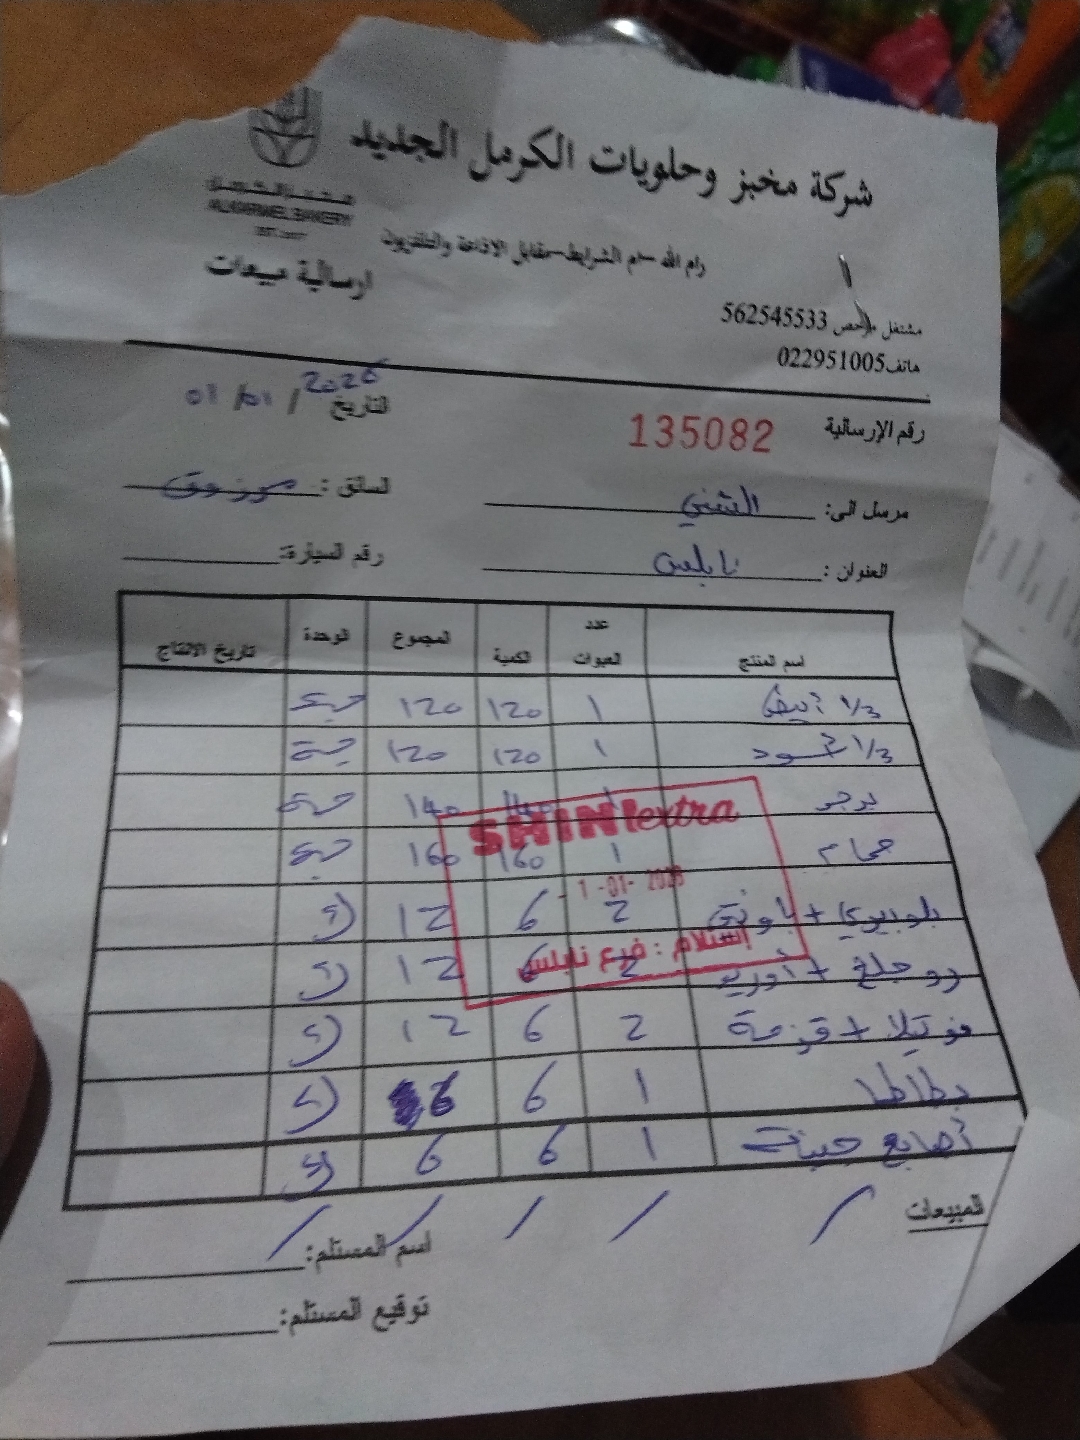 شركة مخبز وحلويات الكرمل الجديد
ALKARMEL BAKERY
رام الله -ام الشرايط-مقابل الاذاعة والتلفزيون
ارسالية مبيعات
مشتغل مرخص 562545533
هاتف022951005
التاريخ 01 / 01 / 2026
رقم الإرسالية 135082
مرسل الى: الشني السائق : مرزوق
العنوان : نابلس رقم السيارة:
اسم المنتج عدد العبوات الكمية المجموع الوحدة تاريخ الانتاج
1/3 أبيض 1 120 120 حبة
1/3 أسود 1 120 120 حبة
برجر 1 140 140 حبة
حمام 1 160 160 حبة
SHINI extra
1-01-2026
استلام : فرع نابلس
بلوبيري + باونتي 2 6 12
2 6 12
نوتيلا + قرفة 2 6 12
بطاطا 1 6 6
أصابع جبنة 1 6 6
المبيعات
اسم المستلم:
توقيع المستلم: